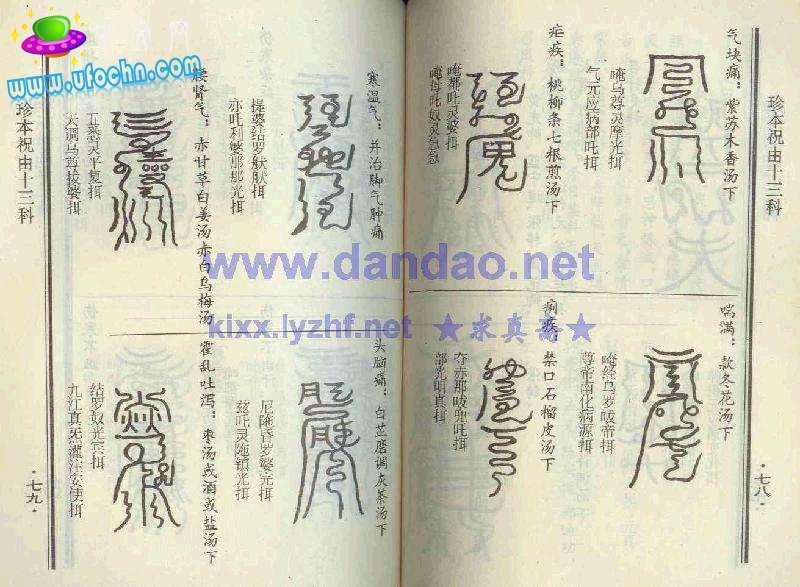 珍本祝由十三科
·七八·
气块痛：紫苏木香汤下
唵乌尊灵摩光揖
气元应病部吒揖
疟疾：桃柳条七根煎汤下
唵那吒灵婆揖
唵母吒奴灵急急
喘满：款冬花汤下
唵经乌罗唆帝揖
尊帝南化病源揖
痢疾：禁口石榴皮汤下
夺赤那唆吒揖
部光明真揖
寒温气：并治脚气肿痛
提婆结罗肤肤揖
亦吒利繁那那光揖
腰肾气：赤甘草白姜汤赤白乌梅汤
五悉灵平复揖
大调乌尊拔婆揖
头脑痛：白芷磨调灰茶汤下
尼陁昏罗婆元揖
兹吒灵陁镇光揖
霍乱吐泻：枣汤或酒或盐汤下
结罗奴光宾揖
九江真炁灌注安使揖
珍本祝由十三科
·七九·
www.ufochn.com
www.dandao.net
kixx.lyzhf.net ★求真斋★